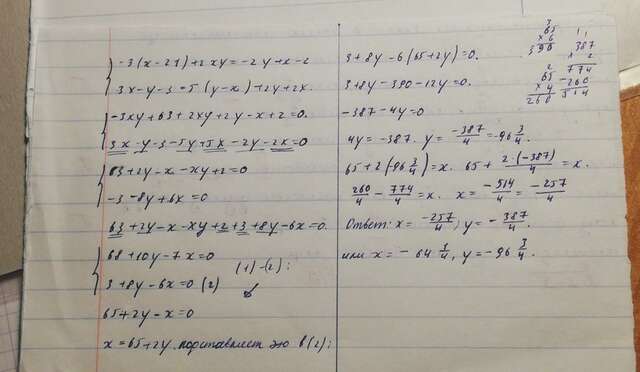 -3(x-21)+2xy=-2y+x-2
3x-y-3=5(y-x)+2y+2x.
-3xy+63+2xy+2y-x+2=0.
3x-y-3-5y+5x-2y-2x=0
63+2y-x-xy+2=0
-3-8y+6x=0
63+2y-x-xy+2+3+8y-6x=0.
68+10y-7x=0
(1)-(2):
3+8y-6x=0 (2)
65+2y-x=0
x=65+2y. подставляем это в (2):
3+8y-6(65+2y)=0.
3+8y-390-12y=0.
-387-4y=0
4y=-387. y=-387/4=-96 3/4
65+2(96 3/4)=x. 65+2·(-387)/4=x.
260/4-774/4=x. x=-514/4=-257/4
Ответ: x=-257/4; y=-387/4.
или x=-64 1/4, y=-96 3/4.
65
×6
390
387
×2
774
65
×4
260
-260
514